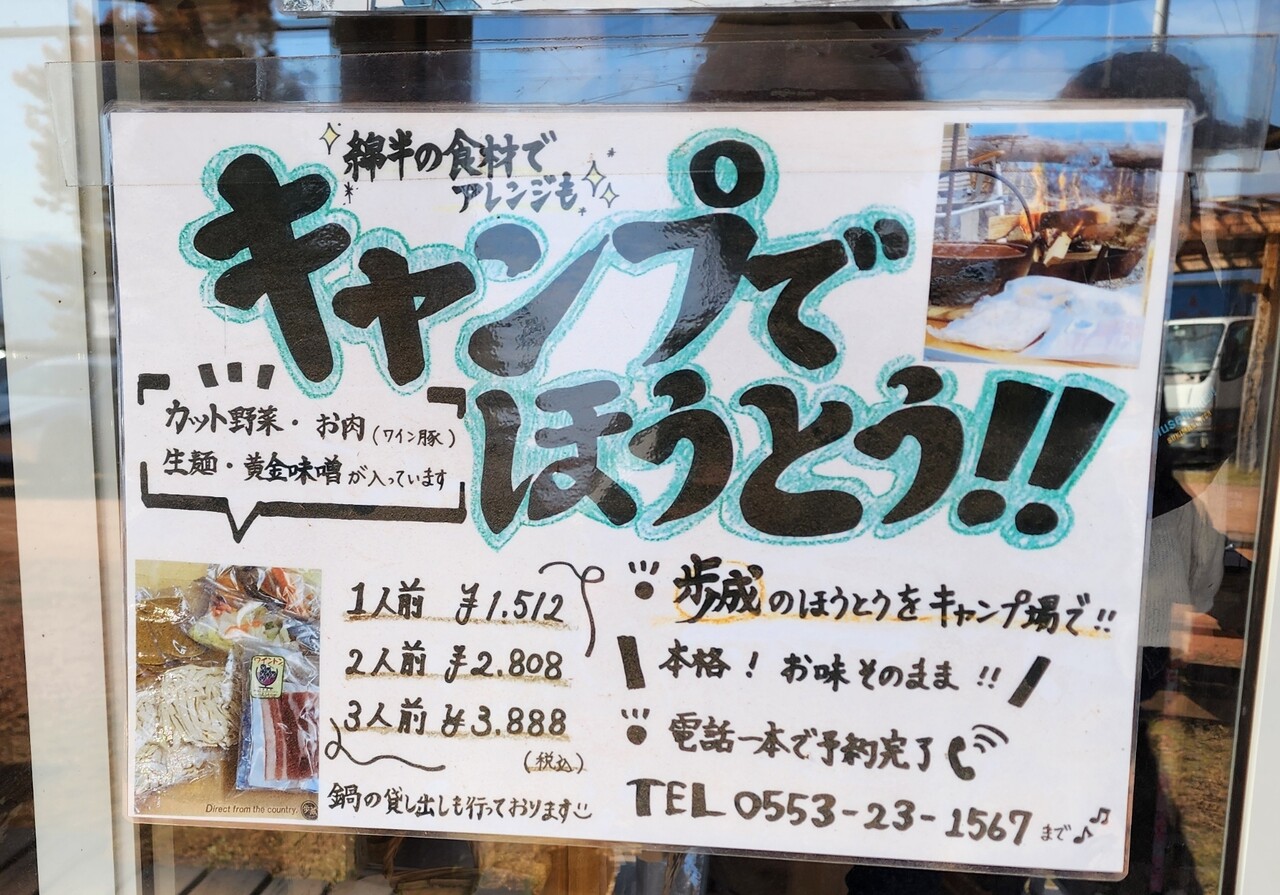 綿半の食材で
アレンジも
キャンプで
ほうとう!!
カット野菜・お肉(ワイン豚)
生麺・黄金味噌が入っています
1人前 ¥1.512
2人前 ¥2.808
3人前 ¥3.888
(税込)
鍋の貸し出しも行っております
Direct from the country.
歩成のほうとうをキャンプ場で!!
本格! お味そのまま!!
電話一本で予約完了
TEL 0553-23-1567まで